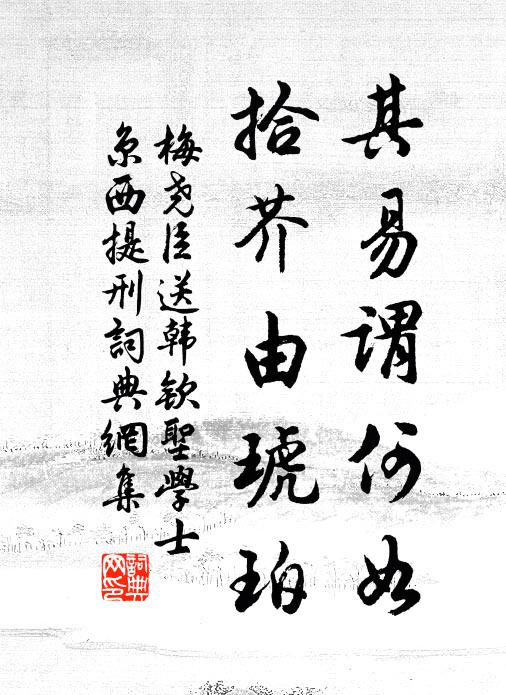 其易谓何如
拾芥由琥珀
梅尧臣送韩钦聖學士
京西提刑詞典網集
詞典網印